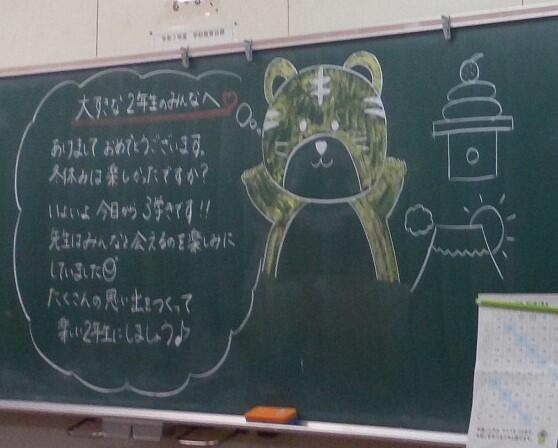 大すきな2年生のみんなへ♡
あけまして おめでとうございます。
冬休みは楽しかったですか?
いよいよ 今日から 3学きです!!
先生はみんなと会えるのを楽しみに
していました
たくさんの思い出をつくって
楽しい2年生にしましょう♪